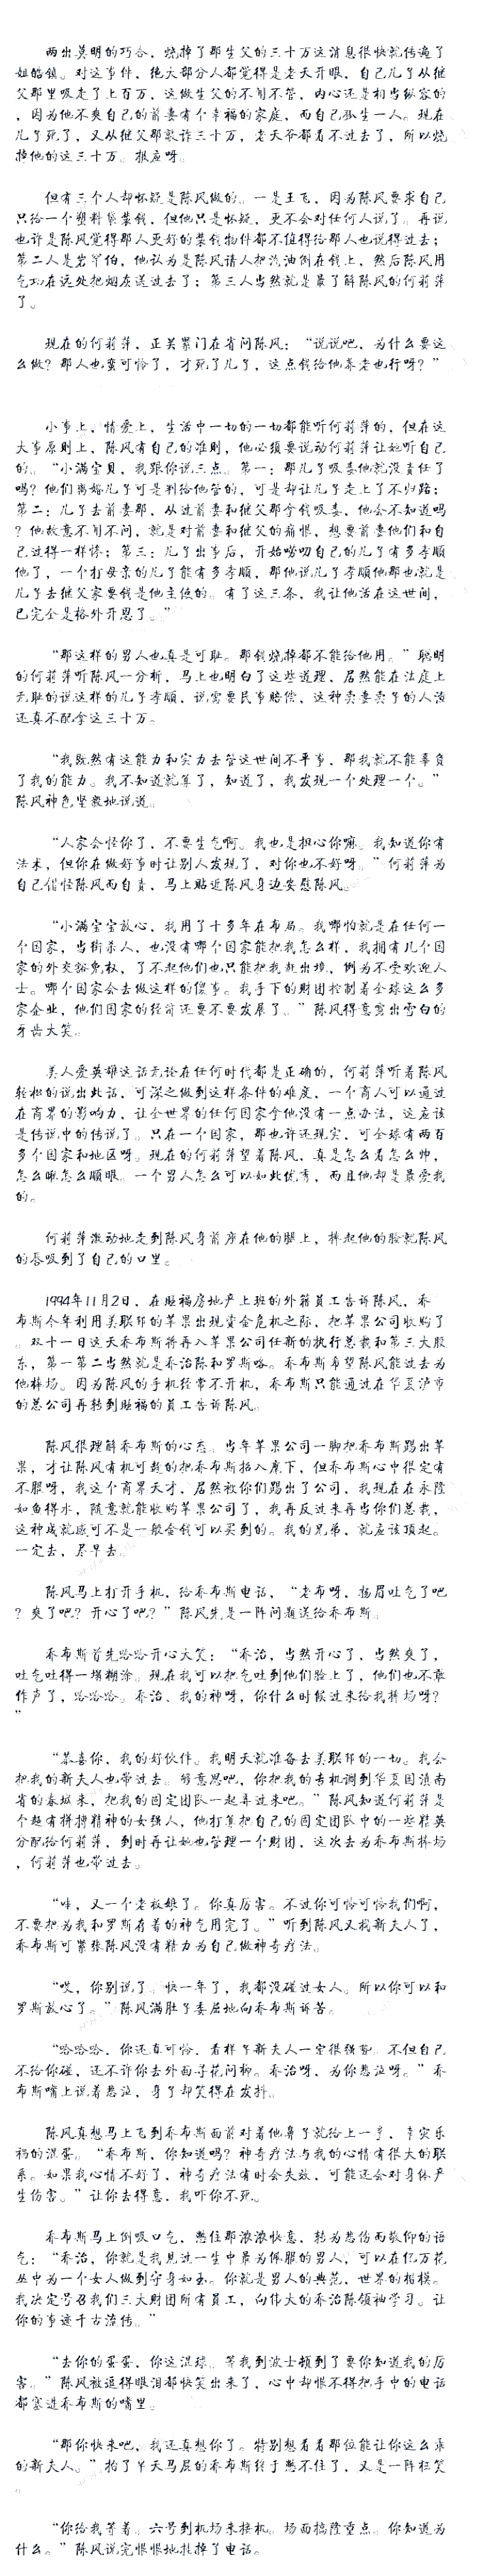 两出莫明的巧合，烧掉了那生父的三十万这消息很快就传遍了
姐皓镇。对这事件，绝大部分人都觉得是老天开眼，自己儿子从继
父那里吸走了上百万，这做生父的不闻不管，内心还是相当纵容的
，因为他不爽自己的前妻有个幸福的家庭，而自己孤生一人。现在
儿子死了，又从继父那敲诈三十万，老天爷都看不过去了，所以烧
掉他的这三十万。报应呀。
但有三个人却怀疑是陈风做的。一是王飞，因为陈风要求自己
只给一个塑料袋装钱，但他只是怀疑，更不会对任何人说了。再说
也许是陈风觉得那人更好的装钱物件都不值得给那人也说得过去；
第二人是岩罕伯，他认为是陈风请人把汽油倒在钱上，然后陈风用
气功在远处把烟灰送过去了；第三人当然就是最了解陈风的何莉萍
了。
现在的何莉萍，正关累门在省问陈风：“说说吧，为什么要这
么做？那人也蛮可怜了，才死了儿子，这点钱给他养老也行呀？”
小事上，情爱上，生活中一切的一切都能听何莉萍的，但在这
大事原则上，陈风有自己的准则，他必须要说动何莉萍让她听自己
的。“小满宝贝，我跟你说三点。第一：那儿子吸毒他就没责任了
吗？他们离婚儿子可是判给他管的，可是却让儿子走上了不归路；
第二：儿子去前妻那，从过前妻和继父那拿钱吸毒，他会不知道吗
？他故意不闻不问，就是对前妻和继父的痛恨，想要前妻他们和自
己过得一样惨；第三：儿子出事后，开始唠叨自己的儿子有多孝顺
他了，一个打母亲的儿子能有多孝顺，那他说儿子孝顺他那也就是
儿子去继父家要钱是他主使的。有了这三条，我让他活在这世间，
已完全是格外开恩了。”
“那这样的男人也真是可耻。那钱烧掉都不能给他用。”聪明
的何莉萍听陈风一分析，马上也明白了这些道理，居然能在法庭上
无耻的说这样的儿子孝顺，说需要民事赔偿，这种卖妻卖子的人渣
还真不配拿这三十万。
“我既然有这能力和实力去管这世间不平事，那我就不能辜负
了我的能力。我不知道就算了，知道了，我发现一个处理一个。”
陈风神色坚毅地说道。
“人家会怪你了，不要生气啊。我也是担心你嘛。我知道你有
法术，但你在做好事时让别人发现了，对你也不好呀。”何莉萍为
自己借怪陈风而自责，马上贴近陈风身边安慰陈风。
“小满宝宝放心，我用了十多年在布局。我哪怕就是在任何一
个国家，当街杀人，也没有哪个国家能把我怎么样，我拥有几个国
家的外交豁免权，了不起他们也只能把我赶出境，倒为不受欢迎人
士。哪个国家会去做这样的傻事。我手下的财团控制着全球这么多
家企业，他们国家的经济还要不要发展了。”陈风得意露出雪白的
牙齿大笑。
美人爱英雄这话无论在任何时代都是正确的，何莉萍听着陈风
轻松的说出此话，可深之做到这样条件的难度，一个商人可以通过
在商界的影响力，让全世界的任何国家拿他没有一点办法，这应该
是传说中的传说了。只在一个国家，那也许还现实，可全球有两百
多个国家和地区呀。现在的何莉萍望着陈风，真是怎么看怎么帅，
怎么瞅怎么顺眼。一个男人怎么可以如此优秀，而且他却是最爱我
的。
何莉萍激动地走到陈风身前座在他的腿上，捧起他的脸就陈风
的唇吸到了自己的口里。
1994年11月2日，在赐福房地产上班的外籍员工告诉陈风，乔
布斯今年利用美联邦的苹果出现资金危机之际，把苹果公司收购了
。双十一日这天乔布斯将再入苹果公司任新的执行总裁和第三大股
东，第一第二当然就是乔治陈和罗斯咯。乔布斯希望陈风能过去为
他捧场。因为陈风的手机经常不开机，乔布斯只能通过在华夏沪市
的总公司再转到赐福的员工告诉陈风。
陈风很理解乔布斯的心态。当年苹果公司一脚把乔布斯踢出苹
果，才让陈风有机可趁的把乔布斯招入麾下，但乔布斯心中很定有
不服呀，我这个商界天才，居然被你们踢出了公司，我现在在永隆
如鱼得水，随意就能收购苹果公司了，我再反过来再当你们总裁，
这种成就感可不是一般金钱可以买到的。我的兄弟，就应该顶起。
一定去，尽早去。
陈风马上打开手机，给乔布斯电话，“老布呀，扬眉吐气了吧
？爽了吧？开心了吧？”陈风先是一阵问题送给乔布斯。
乔布斯首先哈哈开心大笑：“乔治，当然开心了，当然爽了，
吐气吐得一塌糊涂。现在我可以把气吐到他们脸上了，他们也不敢
作声了，哈哈哈。乔治、我的神呀，你什么时候过来给我捧场呀？
”
“恭喜你，我的好伙伴。我明天就准备去美联邦的一切。我会
把我的新夫人也带过去。够意思吧，你把我的专机调到华夏国滇南
省的春城来，把我的固定团队一起弄过来吧。”陈风知道何莉萍是
个超有拼搏精神的女强人，他打算把自己的固定团队中的一些精英
分配给何莉萍，到时再让她也管理一个财团，这次去为乔布斯捧场
，何莉萍也带过去。
“哇，又一个老板娘了。你真厉害。不过你可怜可怜我们啊，
不要把为我和罗斯存着的神气用完了。”听到陈风又找新夫人了，
乔布斯可紧张陈风没有精力为自己做神奇疗法。
“哎，你别说了。快一年了，我都没碰过女人。所以你可以和
罗斯放心了。”陈风满肚子委屈地向乔布斯诉苦。
“哈哈哈，你还真可怜，看样子新夫人一定很强势。不但自己
不给你碰，还不许你去外面寻花问柳。乔治呀，为你悲泣呀。”乔
布斯嘴上说着悲泣，身子却笑得在发抖。
陈风真想马上飞到乔布斯面前对着他鼻子就给上一拳，幸灾乐
祸的混蛋。“乔布斯，你知道吗？神奇疗法与我的心情有很大的联
系。如果我心情不好了，神奇疗法有时会失效，可能还会对身体产
生伤害。”让你去得意，我吓你不死。
乔布斯马上倒吸口气，憋住那浓浓快意，转为悲伤而敬仰的语
气：“乔治，你就是我见过一生中最为佩服的男人，可以在亿万花
丛中为一个女人做到守身如玉。你就是男人的典范，世界的楷模。
我决定号召我们三大财团所有员工，向伟大的乔治陈领袖学习。让
你的事迹千古流传。”
“去你的蛋蛋，你这混球。等我到波士顿到了要你知道我的厉
害。”陈风被逗得眼泪都快笑出来了，心中却恨不得把手中的电话
都塞进乔布斯的嘴里。
“那你快来吧，我还真想你了。特别想看看那位能让你这么乖
的新夫人。”拍了半天马屁的乔布斯终于憋不住了，又是一阵狂笑
。
“你给我等着。六号到机场来接机。场面搞隆重点。你知道为
什么。”陈风说完恨恨地挂掉了电话。